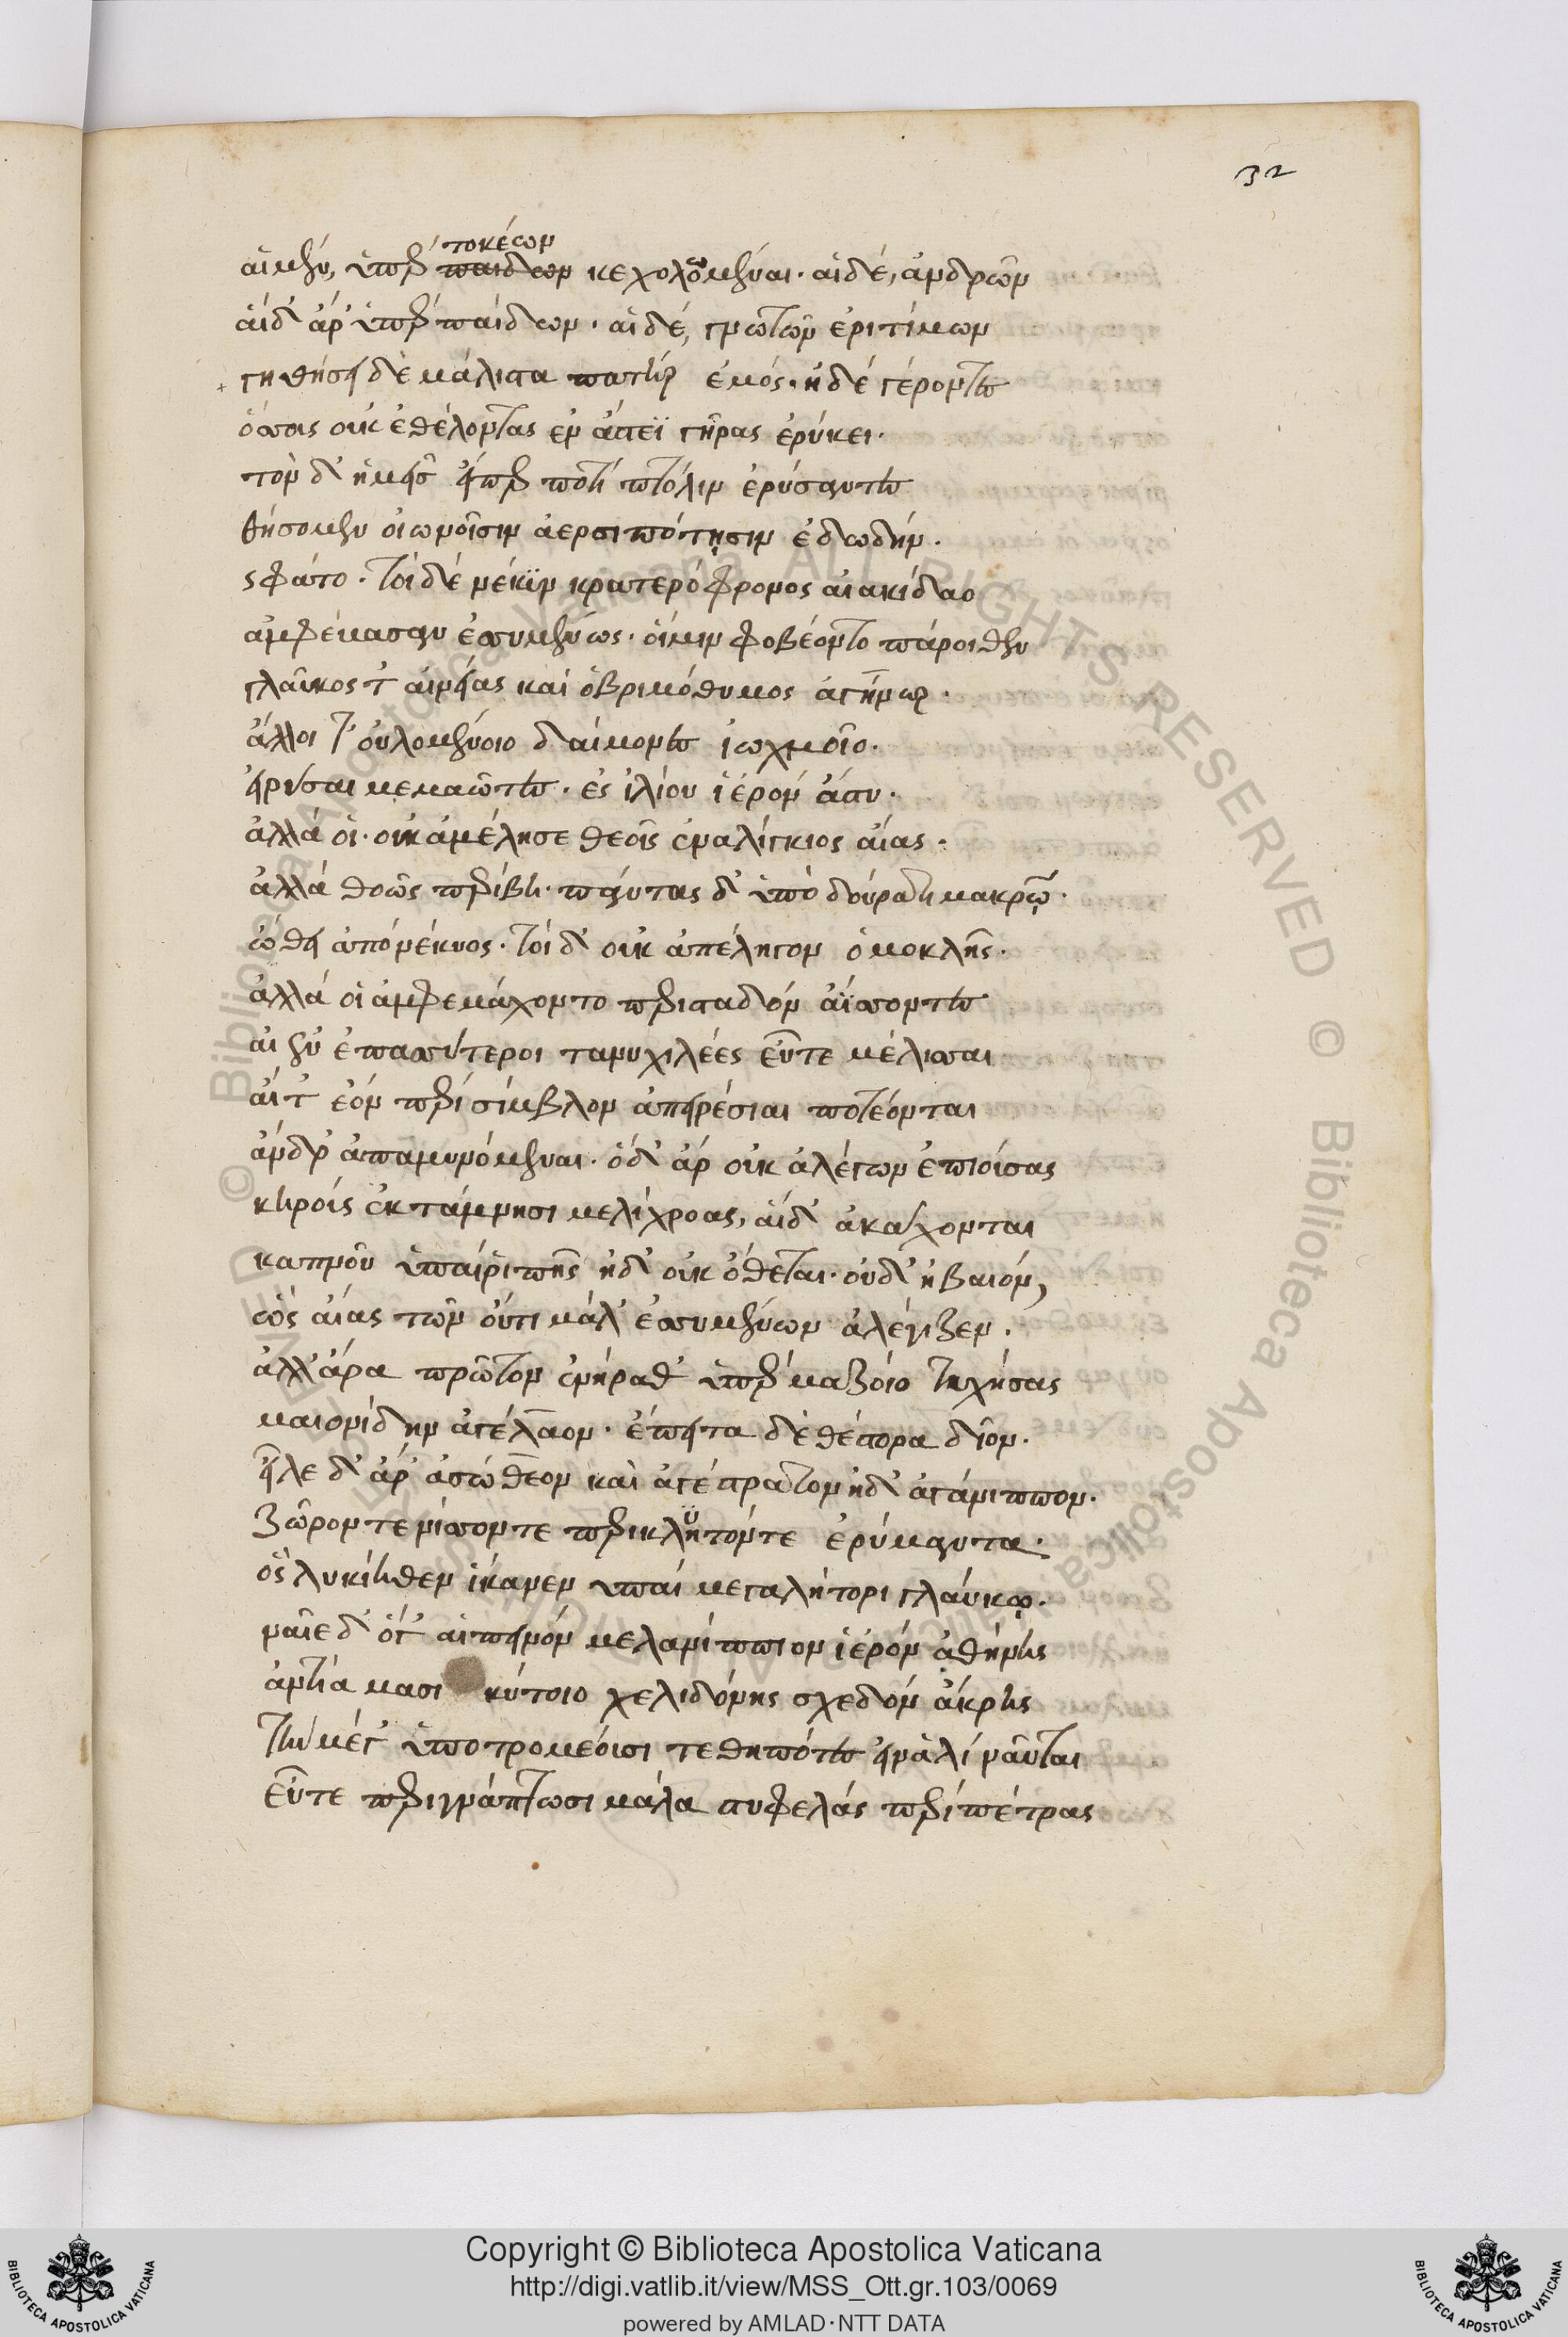 32
τοκέων
αἱμὲν, ὑπὲρ παίδων κεχολωμέναι· αἱδέ, ἀνδρῶν
αἱδ' ἄρ' ὑπὲρ παίδων· αἱ δέ, γνωτῶν ἐριτίμων
+ γηθήσει δὲ μάλιστα πατὴρ ἐμός· ἠδὲ γέροντες
ὅσσοις οὐκ ἐθέλοντας ἐν ἄστεϊ γῆρας ἐρύκει·
τὸν δ' ἡμεῖς εἴπερ ποτὶ πτόλιν ἐρύσαντες
θήσομεν οἰωνοῖσιν ἀερσιπότησιν ἐδωδήν.
ς φάτο· τοὶ δὲ νέκυν κρατερόφρονος αἰακίδαο
ἀμφέμασαν ἐσσυμένως· οἵμιν φοβέοντο πάροιθεν
γλαῦκος τ' αἰνείας καὶ ὀβριμόθυμος ἀγήνωρ·
ἄλλοι τ' οὐλομένοιο δαίμονες ἰωχμοῖο·
εἰρύσαι μεμαῶτες· ἐς ἰλίου ἱερὸν ἄστυ·
ἀλλά οἱ· οὐκ ἀμέλησε θεοῖς ἐναλίγκιος αἴας·
ἀλλὰ θοῶς περίβη· πάντας δ' ὑπὸ δούρατι μακρῷ·
ὤθει ἀπὸ νέκυος· τοὶ δ' οὐκ ἀπέληγον ὁμοκλῆς·
ἀλλά οἱ ἀμφεμάχοντο περισταδὸν ἀΐσσοντες
αἰὲν ἐπασσύτεροι τανυχιλέες εὖτε μέλισσαι
αἵ τ' ἑὸν περὶ σίμβλον ἀπειρέσιαι ποτέονται
ἄνδρ' ἀπαμυνόμεναι· ὁ δ' ἄρ οὐκ ἀλέγων ἐπιούσας
κηροὺς ἐκτάμνησι μελίχροας, αἱ δ' ἀκάχονται
καπνοῦ ὑπαὶ ῥιπῆς ἠδ' οὐκ ὄθεται· οὐδ' ἠβαιόν,
ὣς αἴας τῶν οὔτι μάλ' ἐσσυμένων ἀλέγιζεν·
ἀλλ' ἄρα πρῶτον ἐνήραθ' ὑπὲρ μαζοῖο τυχήσας
μαιονίδην ἀγέλαον· ἔπειτα δὲ θέστορα δῖον·
εἷλε δ' ἄρ' ἀσώθεον καὶ ἀγέστρατον ἠδ' ἀγάνιππον·
ζῶρόν τε νίσσόν τε περικλυτόν τε ἐρύμαντα·
ὃς λυκίηθεν ἵκανεν ὑπαὶ μεγαλήτορι γλαύκῳ·
ναῖε δ' ὅγ' αἰπεινὸν μελανίππιον ἱερὸν ἀθήνης
ἀντία μασι κύτοιο χελιδόνης σχεδὸν ἄκρης
τὴν μέγ' ὑποτρομέουσι τεθηπότες εἰναλί ναῦται
εὖτε περιγνάπτωσι μάλα στυφελὰς περὶ πέτρας
Copyright © Biblioteca Apostolica Vaticana
http://digi.vatlib.it/view/MSS_Ott.gr.103/0069
powered by AMLAD·NTT DATA